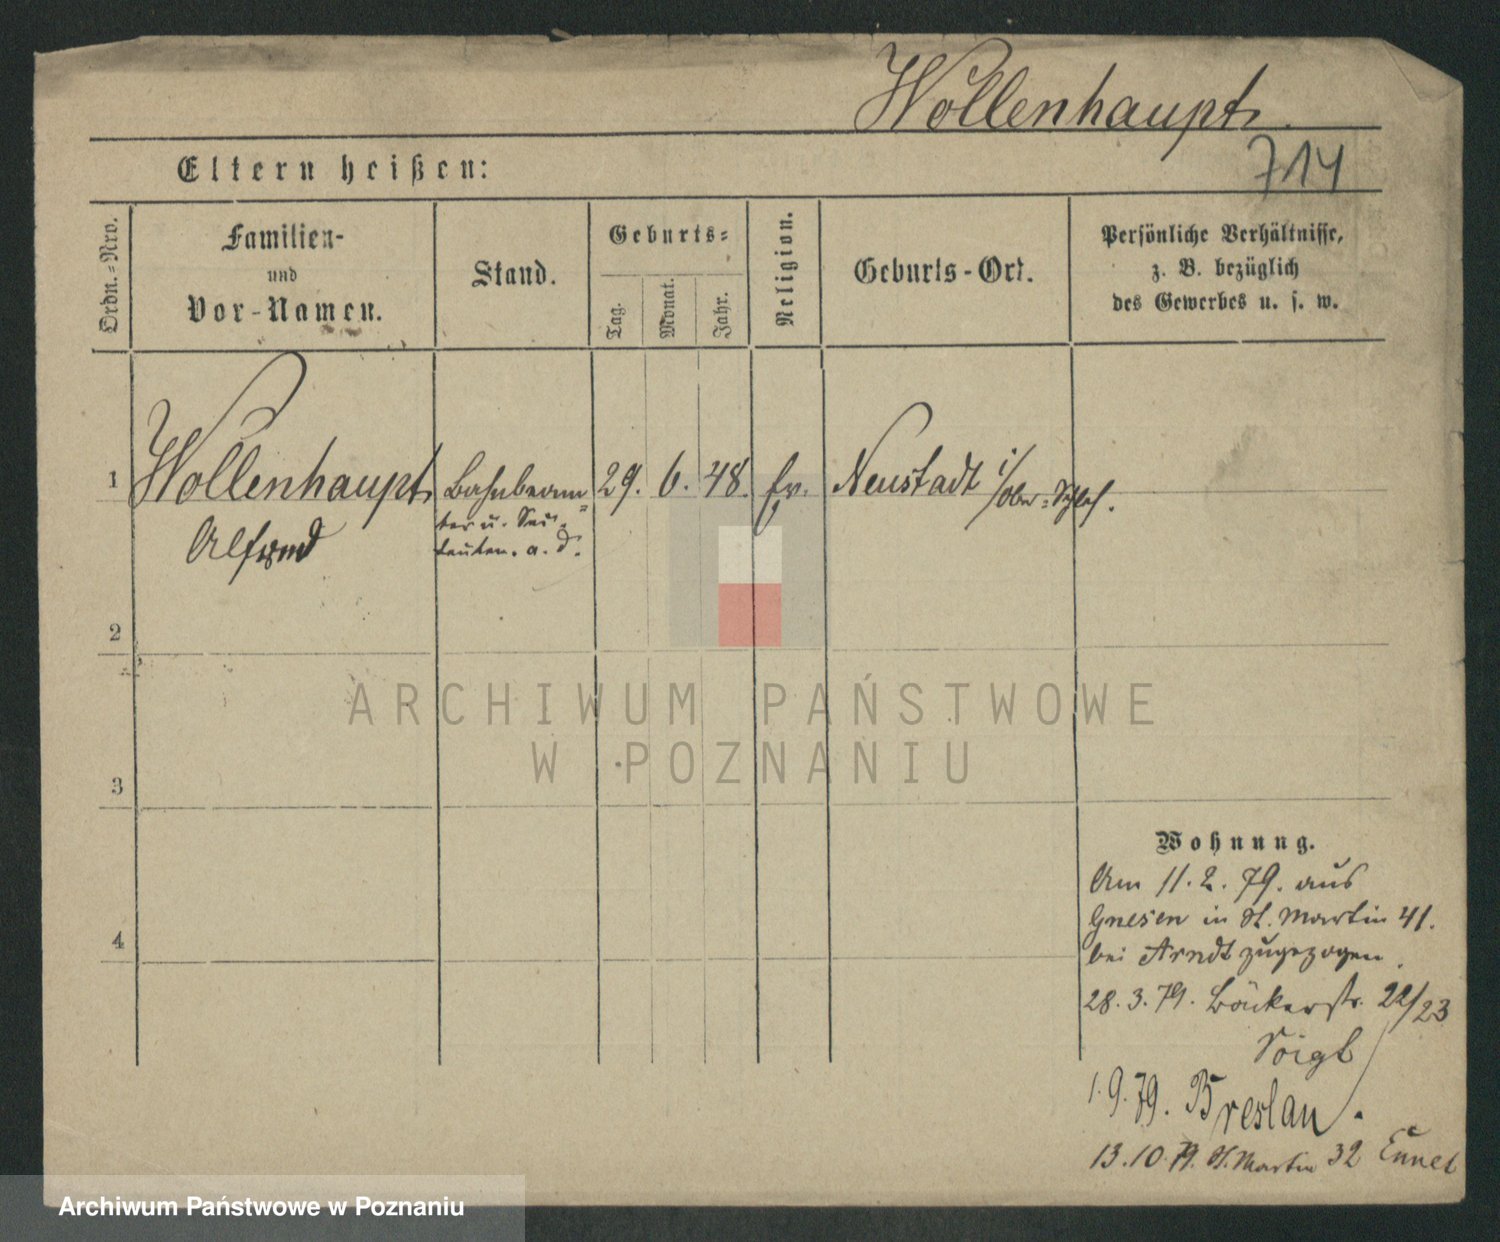 Wollenhaupt.
714
Eltern heißen:
Ordn.-Nro.
Familien-
und
Vor-Namen.
Stand.
Geburts-
Tag.
Monat.
Jahr.
Religion.
Geburts-Ort.
Persönliche Verhältnisse,
z. B. bezüglich
des Gewerbes u. s. w.
1 Wollenhaupt Bahnbeam- 29. 6. 48. ev. Neustadt i/Ober-Schles.
Alfred
ter u. Seu-
teuten. a. D.
2
3
4
ARCHIWUM PAŃSTWOWE
W POZNANIU
Wohnung.
Am 11. 2. 79. aus
Gnesen in St. Martin 41.
bei Arndt zugezogen.
28. 3. 79. Bäckerstr. 22/23
Voigt
1. 9. 79. Breslau.
13. 10. 79. St. Martin 32
Archiwum Państwowe w Poznaniu